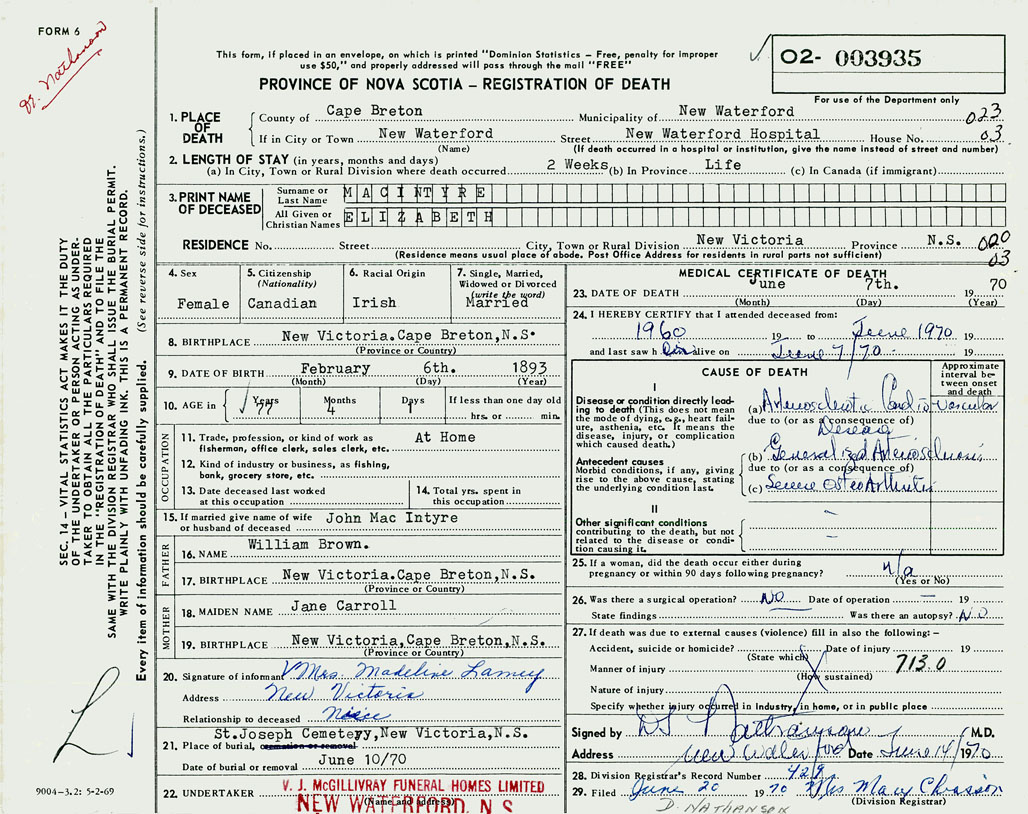 FORM 6
Dr. Nathanson
This form, if placed in an envelope, on which is printed "Dominion Statistics – Free, penalty for improper
use $50," and properly addressed will pass through the mail "FREE"
PROVINCE OF NOVA SCOTIA – REGISTRATION OF DEATH
02- 003935
For use of the Department only
1. PLACE OF DEATH County of Cape Breton Municipality of New Waterford 023
If in City or Town New Waterford Street New Waterford Hospital House No. 03
(Name) (If death occurred in a hospital or institution, give the name instead of street and number)
2. LENGTH OF STAY (in years, months and days)
(a) In City, Town or Rural Division where death occurred 2 Weeks (b) In Province Life (c) In Canada (if immigrant)
3. PRINT NAME OF DECEASED Surname or Last Name MACINTYRE
All Given or Christian Names ELIZABETH
RESIDENCE No. Street City, Town or Rural Division New Victoria Province N.S. 020
(Residence means usual place of abode. Post Office Address for residents in rural parts not sufficient) 03
4. Sex Female
5. Citizenship (Nationality) Canadian
6. Racial Origin Irish
7. Single, Married, Widowed or Divorced (write the word) Married
8. BIRTHPLACE New Victoria.Cape Breton,N.S.
(Province or Country)
9. DATE OF BIRTH February 6th. 1893
(Month) (Day) (Year)
10. AGE in Years 77 Months 4 Days 1 If less than one day old
hrs. or min.
OCCUPATION
11. Trade, profession, or kind of work as At Home
fisherman, office clerk, sales clerk, etc.
12. Kind of industry or business, as fishing,
bank, grocery store, etc.
13. Date deceased last worked
at this occupation
14. Total yrs. spent in
this occupation
15. If married give name of wife John Mac Intyre
or husband of deceased
FATHER
16. NAME William Brown.
17. BIRTHPLACE New Victoria.Cape Breton,N.S.
(Province or Country)
MOTHER
18. MAIDEN NAME Jane Carroll
19. BIRTHPLACE New Victoria,Cape Breton,N.S.
(Province or Country)
20. Signature of informant Mrs. Madeline Lamey
Address New Victoria
Relationship to deceased Niece
St.Joseph Cemeteyy,New Victoria,N.S.
21. Place of burial, cremation or removal
Date of burial or removal June 10/70
22. UNDERTAKER V. J. McGILLIVRAY FUNERAL HOMES LIMITED
(Name and address)
NEW WATERFORD, N.S.
MEDICAL CERTIFICATE OF DEATH
23. DATE OF DEATH June 7th. 19 70
(Month) (Day) (Year)
24. I HEREBY CERTIFY that I attended deceased from:
1960 19 to June 1970 19
and last saw h er alive on June 7/70 19
CAUSE OF DEATH
Approximate interval between onset and death
I
Disease or condition directly leading to death (This does not mean the mode of dying, e.g., heart failure, asthenia, etc. It means the disease, injury, or complication which caused death.)
(a) Arteriosclerotic Cardio-vascular
due to (or as a consequence of)
Disease
Antecedent causes
Morbid conditions, if any, giving rise to the above cause, stating the underlying condition last.
(b) Generalized Arteriosclerosis
due to (or as a consequence of)
(c) Severe Osteo Arthritis
II
Other significant conditions
contributing to the death, but not related to the disease or condition causing it.
25. If a woman, did the death occur either during
pregnancy or within 90 days following pregnancy? n/a
(Yes or No)
26. Was there a surgical operation? NO Date of operation – 19
State findings Was there an autopsy? NO
27. If death was due to external causes (violence) fill in also the following: –
Accident, suicide or homicide? Date of injury 19
(State which)
Manner of injury 713.0
(How sustained)
Nature of injury
Specify whether injury occurred in industry, in home, or in public place
Signed by D Nathanson M.D.
Address New Waterford Date June 14/1970
28. Division Registrar's Record Number 429
29. Filed June 20 1970 Mrs Mary Chiasson
(Division Registrar)
D. NATHANSON
SEC. 14 – VITAL STATISTICS ACT MAKES IT THE DUTY
OF THE UNDERTAKER OR PERSON ACTING AS UNDER-
TAKER TO OBTAIN ALL THE PARTICULARS REQUIRED
IN THE "REGISTRATION OF DEATH" AND TO FILE THE
SAME WITH THE DIVISION REGISTRAR WHO SHALL ISSUE THE BURIAL PERMIT.
WRITE PLAINLY WITH UNFADING INK. THIS IS A PERMANENT RECORD.
Every item of information should be carefully supplied. (See reverse side for instructions.)
L
9004-3.2: 5-2-69